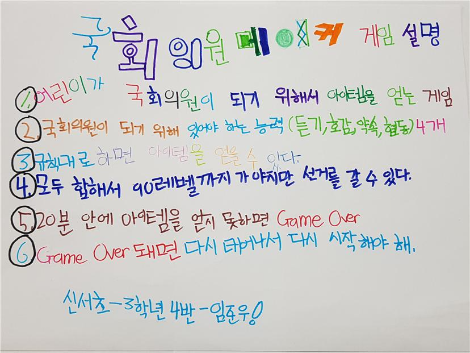 국회의원메이커 게임 설명
1. 어린이가 국회의원이 되기 위해서 아이템을 얻는 게임
2. 국회의원이 되기 위해 있어야 하는 능력(듣기,호감,약속,협동)4개
3 규칙대로 하면 아이템을 얻을 수 있다.
4. 모두 합해서 90레벨까지 가야지만 선거를 갈 수 있다.
5. 20분 안에 아이템을 얻지 못하면 Game Over
6 Game Over 돼면 다시 태어나서 다시 시작해야 해.
신서초-3학년 4반-임준우